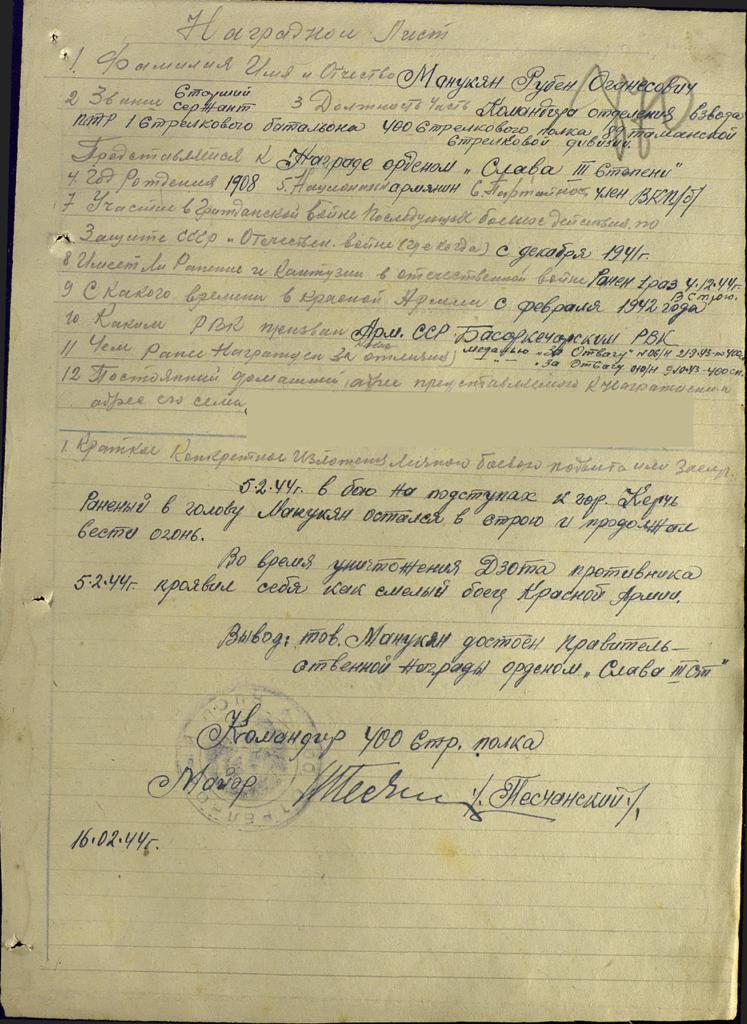 Наградной Лист
1. Фамилия Имя и Отчество Манукян Рубен Оганесович
2 Звание Старший сержант 3 Должность Часть Командира отделения взвода
ПТР 1 Стрелкового батальона 400 Стрелкового полка 89 таманской
стрелковой дивизии.
Представляется к Награде орденом „Слава III Степени"
4. Год Рождения 1908 5. Национал армянин 6. Партийнос член ВКП/б/
7 Участие в Гражданской войне последующих боевые действия по
Защите СССР и Отечествен. войне (где когда) с декабря 1941г.
8 Имеет Ли Ранение и Контузии в отечественной войне Ранен 1 раз 4.12.44г.
В строю.
9 С Какого времени в Красной Армии с февраля 1942 года
10 Каким РВК призван Арм. ССР Басаркечарским РВК
11 Чем Ранее Награжден За отличия) медалью „За Отвагу" 21.9.43
„За Отвагу 9.10.43-400сп.
12 Постоянный домашний адрес представляемого к награждению и
адрес его семьи
1. Краткое Конкретное Изложение Личного боевого подвига или Заслуг.
5.2.44г. в бою на подступах к гор. Керчь
Раненый в голову Манукян остался в строю и продолжал
вести огонь.
Во время уничтожения Дзота противника
5.2.44г. проявил себя как смелый боец Красной Армии.
Вывод: тов. Манукян достоен Правитель-
ственной Награды орденом „Слава III ст"
Командир 400 Стр. полка
Майор /Песчанский/.
16.02.44г.